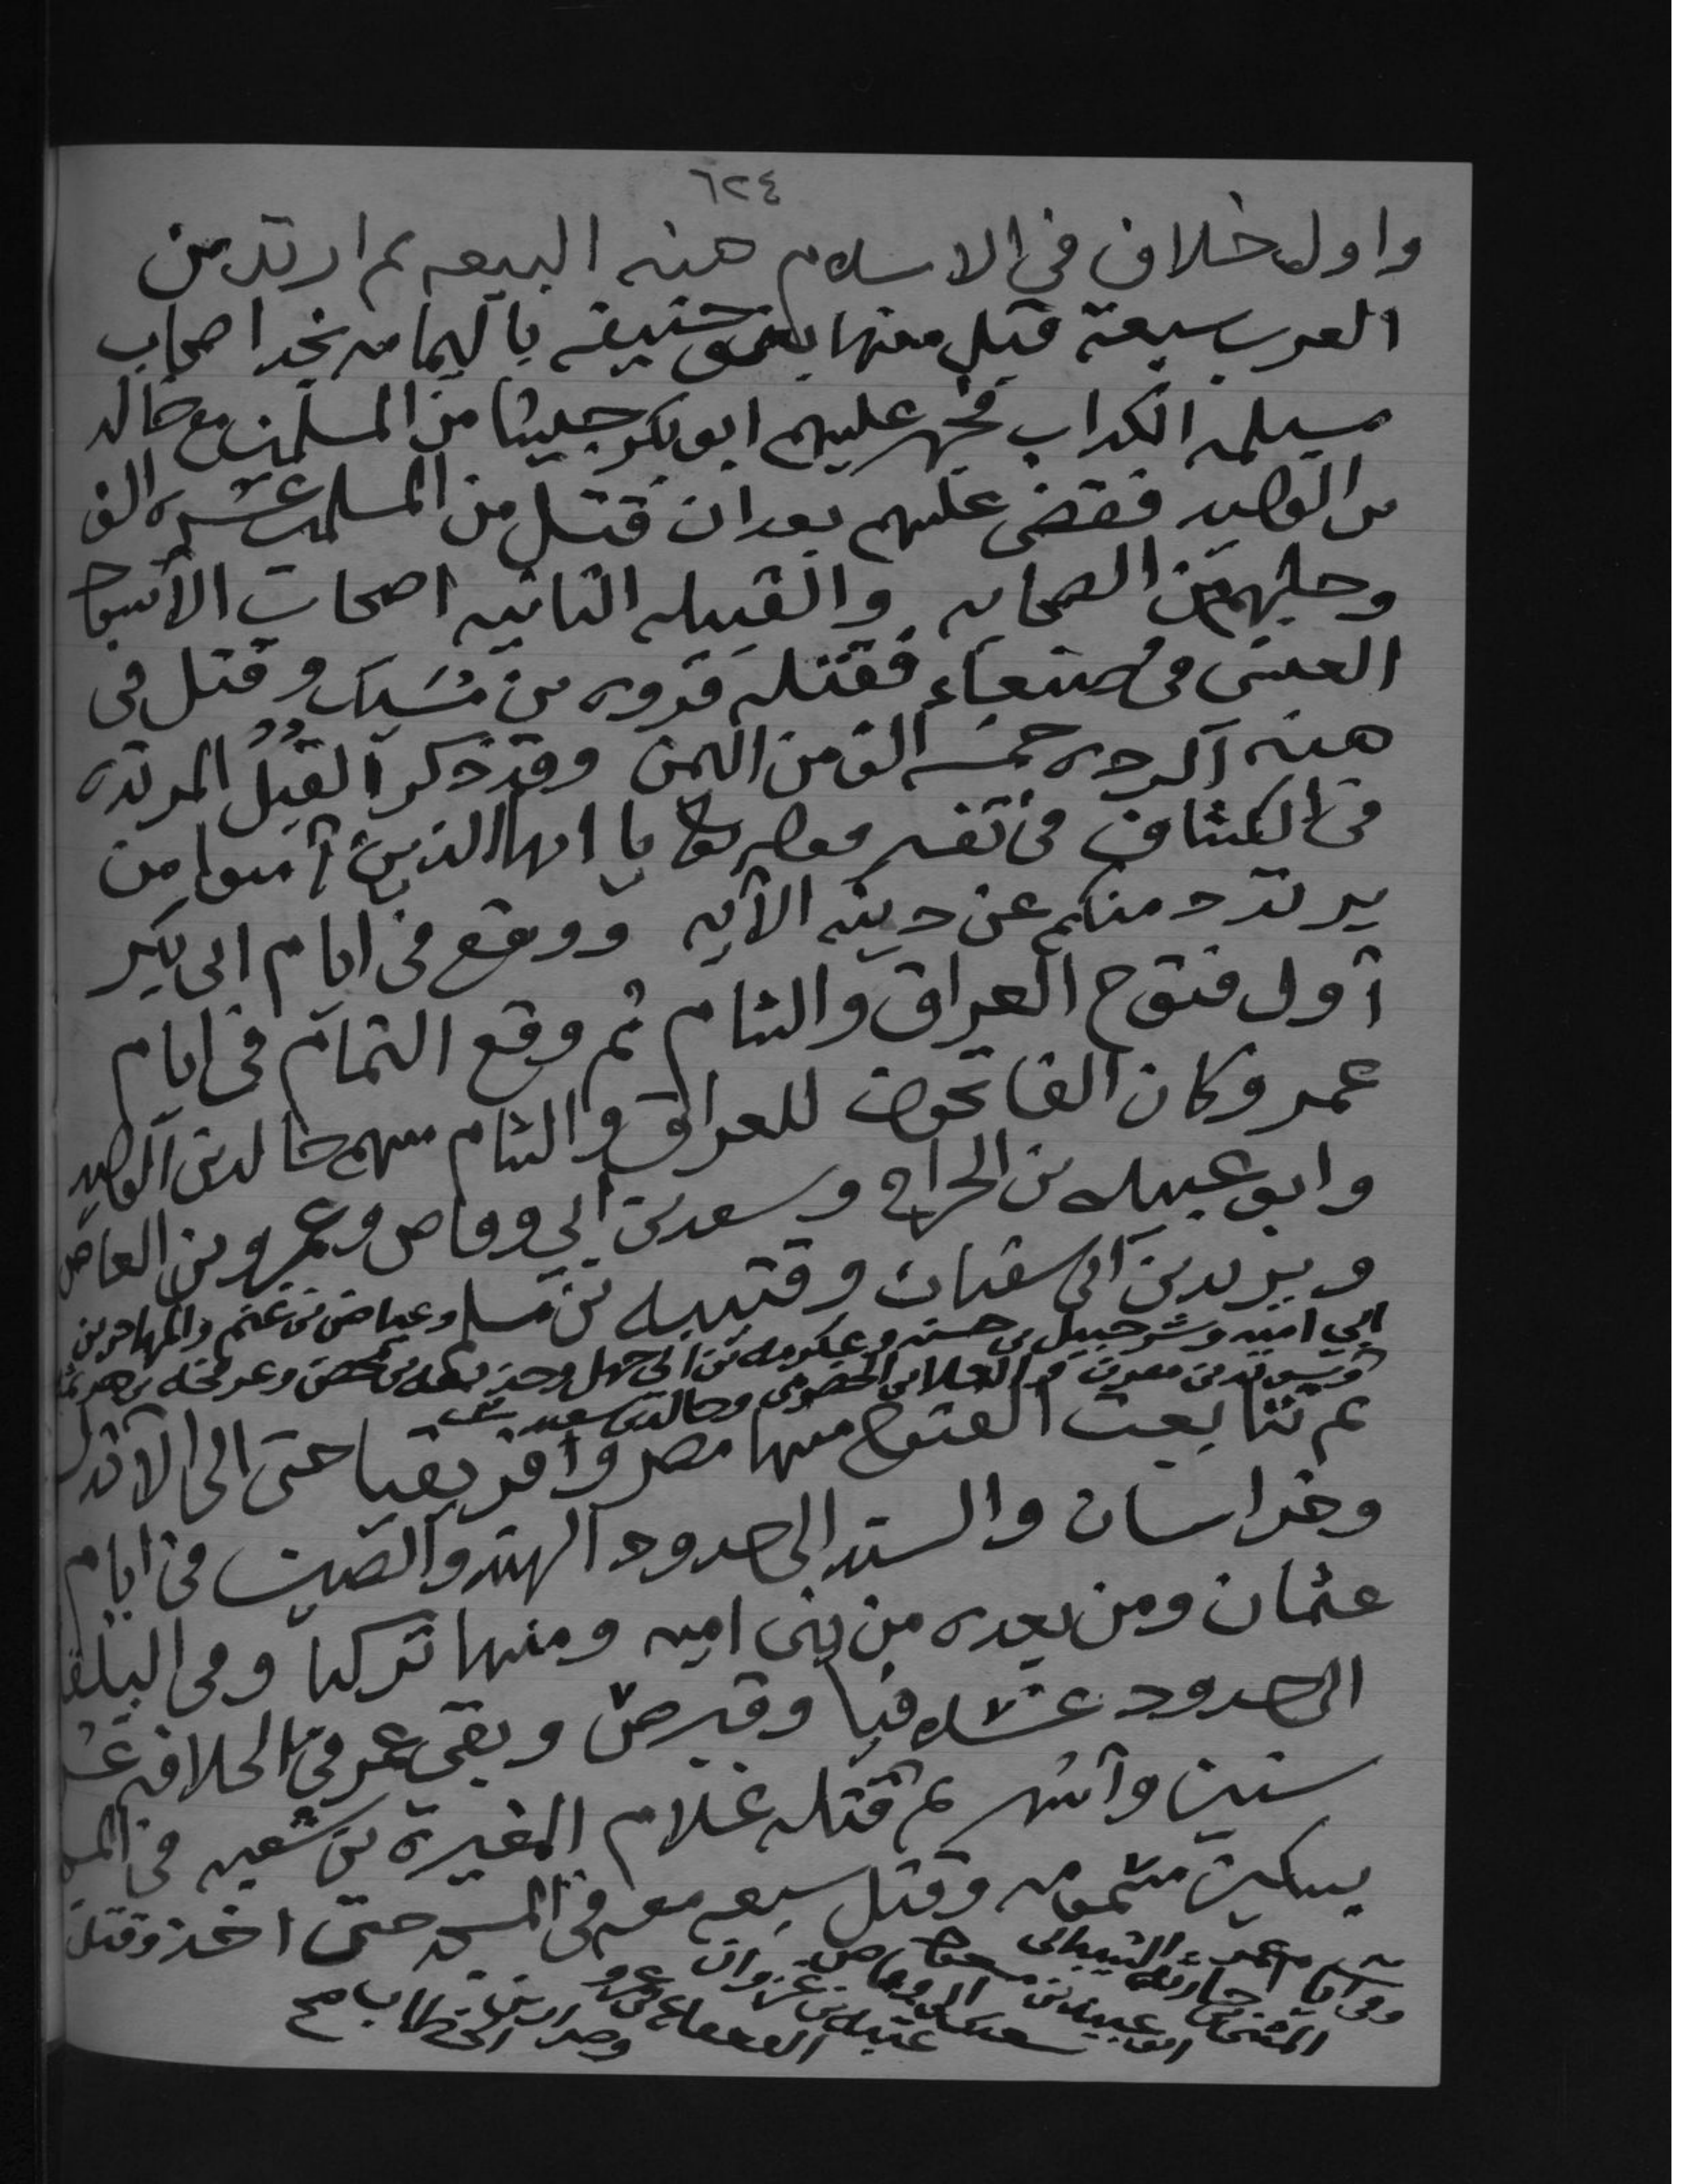 ٦٢٤
واول خلاف في الاسلام هذه البيعه ثم ارتد من
العرب سبعة قبل منها حنيفه باليمامه نجد اصحاب
مسيلمه الكداب فجهز عليهم ابو بكر جيشا من المسلمين مع خالد
بن الوليد فقضى عليهم بعد ان قتل من المسلمين عشره الف
وجلهم من الصحابه والقبيله الثانيه اصحاب الأسود
العنسي في صنعاء فقتله فروه بن مُسَيك وقتل في
هذه الرده خمسه الف من اليمن وقد ذكر القبل المرتده
في الكشاف في تفسير يا ايها الذين آمنوا من
يرتدد منكم عن دينه الآيه ووقع في ايام ابي بكر
أول فتوح العراق والشام ثم وقع التمام في ايام
عمر وكان الفاتحون للعراق والشام منهم خالد بن الوليد
وابو عبيده بن الجراح وسعد بن ابي وقاص وعمرو بن العاص
ويزيد بن ابي سفيان وقتيبه بن مسلم وعياض بن غنم والمهاجر بن
ابي اميه وشرحبيل بن حسنه وعكرمه بن ابي جهل وحذيفه بن محصن وعرفجه بن هرثمه
وسويد بن مقرن والعلا بن الحضرمي وخالد بن سعيد
ثم تتابعت الفتوح منها مصر وافريقيا حتى الى الاندلس
وخراسان والسند الى حدود الهند والصين في ايام
عثمان ومن بعده من بني اميه ومنها تركيا وفي البلقا
الى حدود فيا وقبرص وبقي عمر في الخلافه عشر
سنين وأشهر ثم قتله غلام المغيرة بن شعبه في
بسكين مسمومه وقتل سبعه معه في المسجد حتى اخذ وقتل
وفي ايام عمر
المثنى بن حارثه الشيباني
ابو عبيد بن مسعود
سعد بن ابي وقاص
عتبه بن غزوان
القعقاع بن عمرو
وضرار بن الخطاب صح